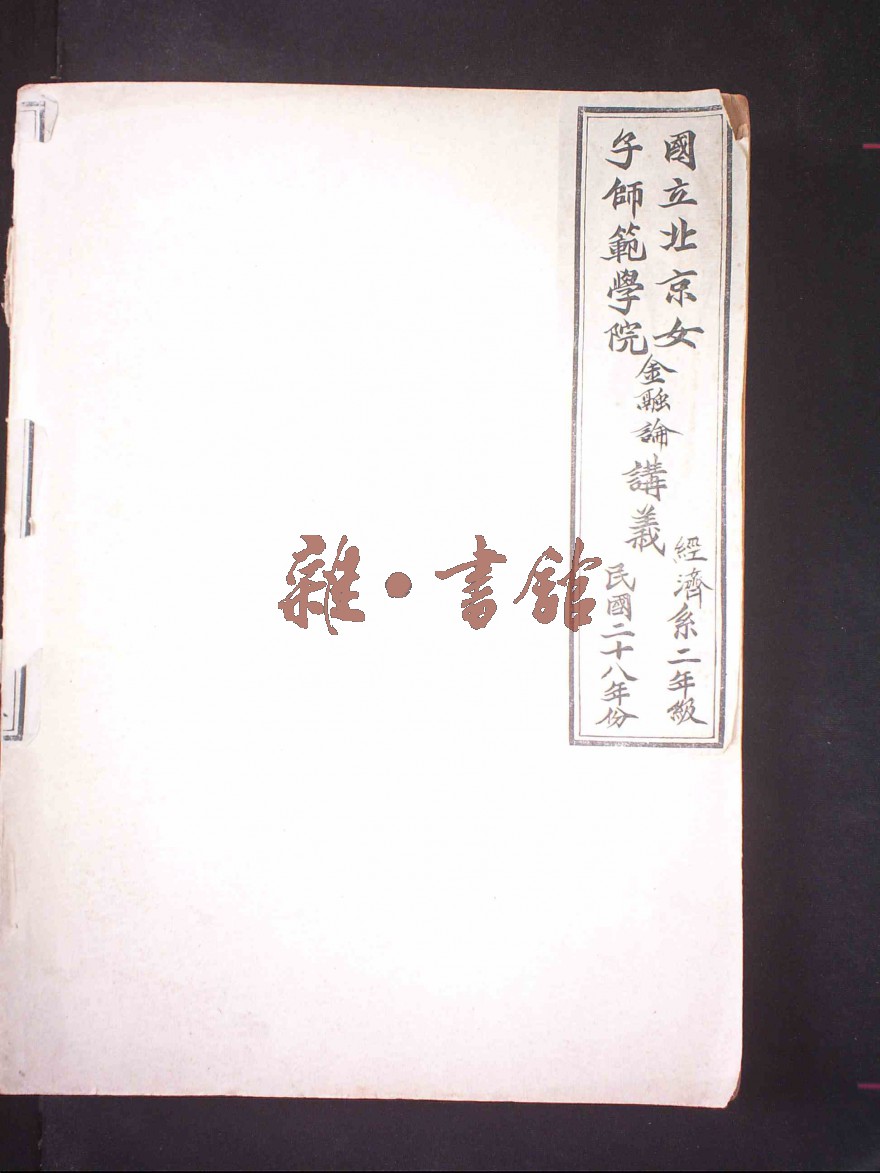 國立北京女
子師範學院
金融論
講義
經濟系二年級
民國二十八年份
雜·書館